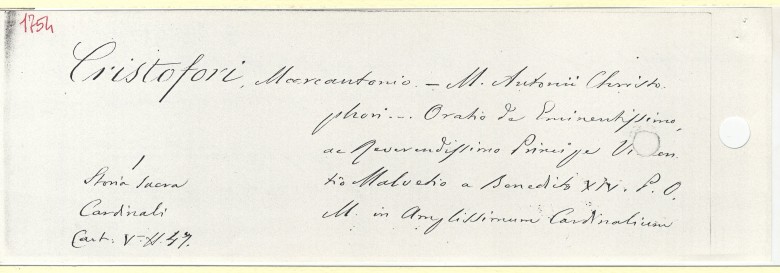 1754
Cristofori, Marcantonio. — M. Antonii Christo-
phori ... Oratio de Eminentissimo,
ac Reverendissimo Principe Vi en-
tio Malvetio a Benedicto XIV. P. O.
M. in Amplissimum Cardinalium
Storia Sacra
Cardinali
Cart. V. H. 47.